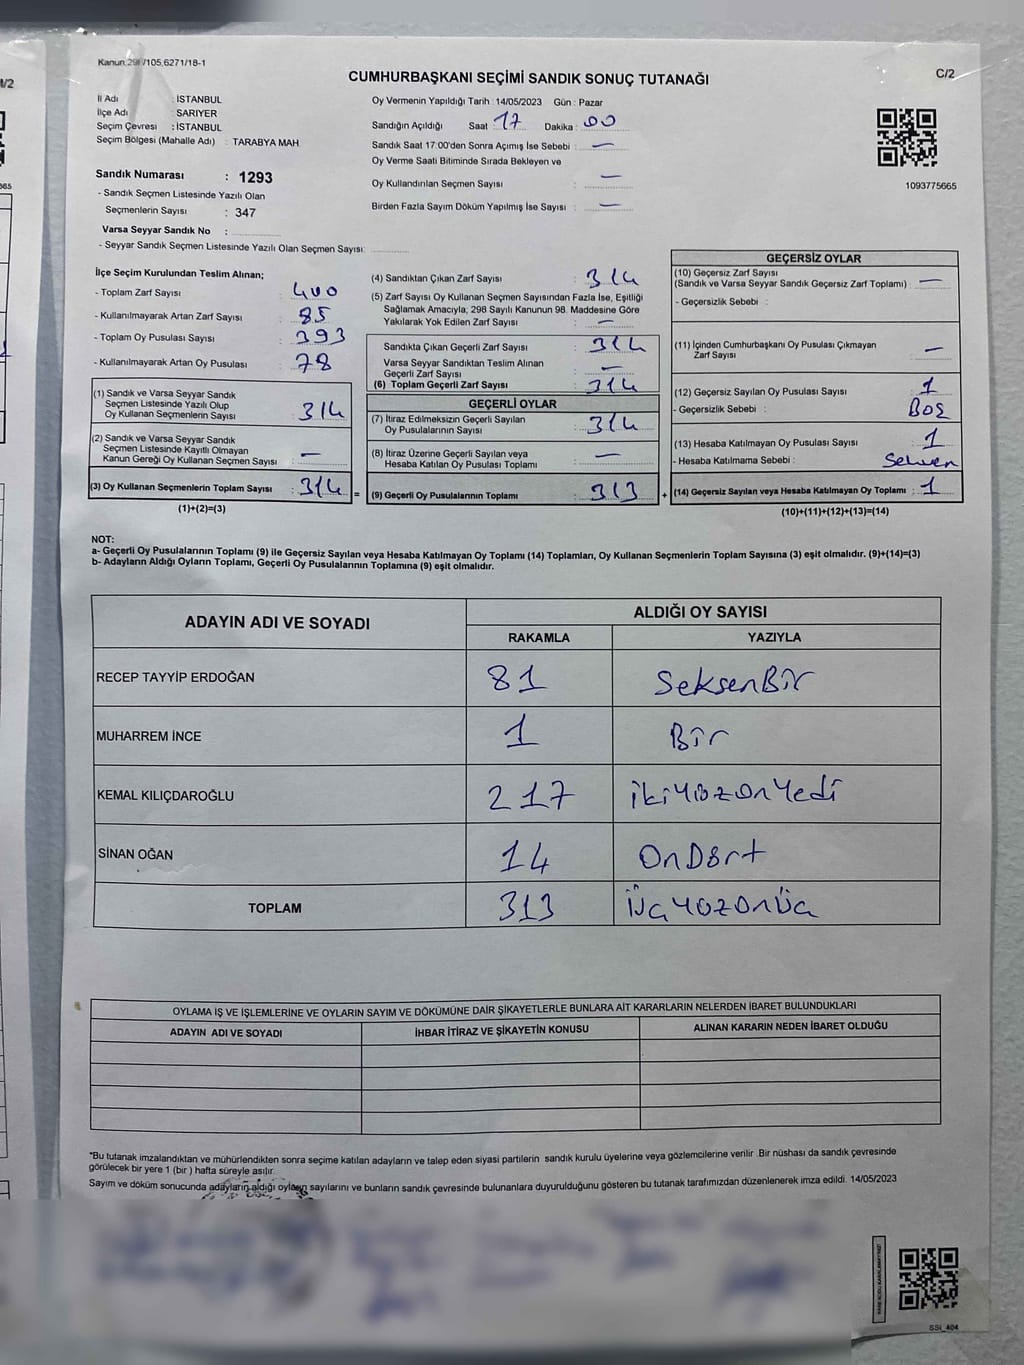 Kanun 298/105,6271/18-1
C/2
CUMHURBAŞKANI SEÇİMİ SANDIK SONUÇ TUTANAĞI
İl Adı : İSTANBUL
İlçe Adı : SARIYER
Seçim Çevresi : İSTANBUL
Seçim Bölgesi (Mahalle Adı) : TARABYA MAH
Oy Vermenin Yapıldığı Tarih : 14/05/2023 Gün : Pazar
Sandığın Açıldığı Saat : 17 Dakika : 00
Sandık Saat 17:00'den Sonra Açımış İse Sebebi : —
Oy Verme Saati Bitiminde Sırada Bekleyen ve
Oy Kullandırılan Seçmen Sayısı : —
Birden Fazla Sayım Döküm Yapılmış İse Sayısı : —
1093775665
Sandık Numarası : 1293
- Sandık Seçmen Listesinde Yazılı Olan
Seçmenlerin Sayısı : 347
Varsa Seyyar Sandık No :
- Seyyar Sandık Seçmen Listesinde Yazılı Olan Seçmen Sayısı:
İlçe Seçim Kurulundan Teslim Alınan;
- Toplam Zarf Sayısı : 400
- Kullanılmayarak Artan Zarf Sayısı : 85
- Toplam Oy Pusulası Sayısı : 393
- Kullanılmayarak Artan Oy Pusulası : 78
(1) Sandık ve Varsa Seyyar Sandık
Seçmen Listesinde Yazılı Olup
Oy Kullanan Seçmenlerin Sayısı : 314
(2) Sandık ve Varsa Seyyar Sandık
Seçmen Listesinde Kayıtlı Olmayan
Kanun Gereği Oy Kullanan Seçmen Sayısı : —
(3) Oy Kullanan Seçmenlerin Toplam Sayısı : 314 =
(1)+(2)=(3)
(4) Sandıktan Çıkan Zarf Sayısı : 314
(5) Zarf Sayısı Oy Kullanan Seçmen Sayısından Fazla İse, Eşitliği
Sağlamak Amacıyla; 298 Sayılı Kanunun 98. Maddesine Göre
Yakılarak Yok Edilen Zarf Sayısı : —
Sandıkta Çıkan Geçerli Zarf Sayısı : 314
Varsa Seyyar Sandıktan Teslim Alınan
Geçerli Zarf Sayısı : —
(6) Toplam Geçerli Zarf Sayısı : 314
GEÇERLİ OYLAR
(7) İtiraz Edilmeksizin Geçerli Sayılan
Oy Pusulalarının Sayısı : 314
(8) İtiraz Üzerine Geçerli Sayılan veya
Hesaba Katılan Oy Pusulası Toplamı : —
(9) Geçerli Oy Pusulalarının Toplamı : 313 +
GEÇERSİZ OYLAR
(10) Geçersiz Zarf Sayısı
(Sandık ve Varsa Seyyar Sandık Geçersiz Zarf Toplamı) : —
- Geçersizlik Sebebi :
(11) İçinden Cumhurbaşkanı Oy Pusulası Çıkmayan
Zarf Sayısı : —
(12) Geçersiz Sayılan Oy Pusulası Sayısı : 1
- Geçersizlik Sebebi : Boş
(13) Hesaba Katılmayan Oy Pusulası Sayısı : 1
- Hesaba Katılmama Sebebi : Sehven
(14) Geçersiz Sayılan veya Hesaba Katılmayan Oy Toplamı : 1
(10)+(11)+(12)+(13)=(14)
NOT:
a- Geçerli Oy Pusulalarının Toplamı (9) ile Geçersiz Sayılan veya Hesaba Katılmayan Oy Toplamı (14) Toplamları, Oy Kullanan Seçmenlerin Toplam Sayısına (3) eşit olmalıdır. (9)+(14)=(3)
b- Adayların Aldığı Oyların Toplamı, Geçerli Oy Pusulalarının Toplamına (9) eşit olmalıdır.
ADAYIN ADI VE SOYADI ALDIĞI OY SAYISI
RAKAMLA YAZIYLA
RECEP TAYYİP ERDOĞAN 81 SeksenBir
MUHARREM İNCE 1 Bir
KEMAL KILIÇDAROĞLU 217 ikiyüzonyedi
SİNAN OĞAN 14 OnDört
TOPLAM 313 ÜçyüzonÜç
OYLAMA İŞ VE İŞLEMLERİNE VE OYLARIN SAYIM VE DÖKÜMÜNE DAİR ŞİKAYETLERLE BUNLARA AİT KARARLARIN NELERDEN İBARET BULUNDUKLARI
ADAYIN ADI VE SOYADI İHBAR İTİRAZ VE ŞİKAYETİN KONUSU ALINAN KARARIN NEDEN İBARET OLDUĞU
*Bu tutanak imzalandıktan ve mühürlendikten sonra seçime katılan adayların ve talep eden siyasi partilerin sandık kurulu üyelerine veya gözlemcilerine verilir .Bir nüshası da sandık çevresinde
görülecek bir yere 1 (bir ) hafta süreyle asılır.
Sayım ve döküm sonucunda adayların aldığı oyların sayılarını ve bunların sandık çevresinde bulunanlara duyurulduğunu gösteren bu tutanak tarafımızdan düzenlenerek imza edildi. 14/05/2023
SSİ_404